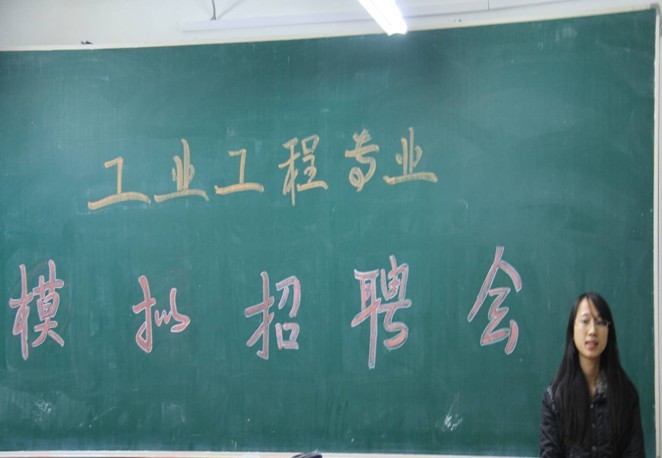 工业工程专业
模拟招聘会